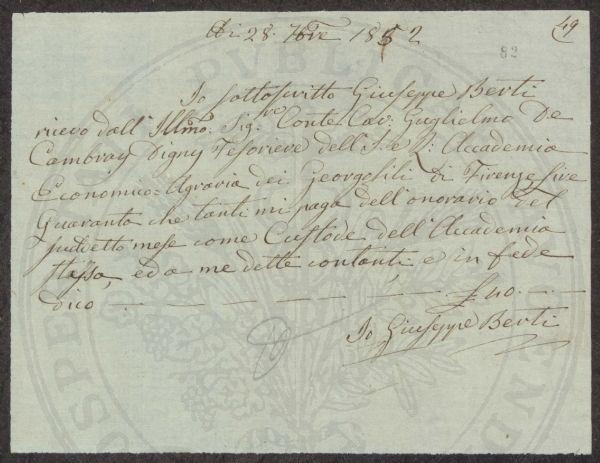 49
Di 28. 7bre 1852
82
Io sottoscritto Giuseppe Berti
ricevo dall' Illmo: Sigre. Conte Cav: Guglielmo De
Cambray Digny Tesoriere dell' I: e R: Accademia
Economico=Agraria dei Georgofili di Firenze Lire
Quaranta che tanti mi paga dell' onorario del
suddetto mese come Custode dell' Accademia
stessa, ed a me dette contanti e in fede
dico — — — — — — £ 40. —
Io Giuseppe Berti
PUBLIC
PROSPE